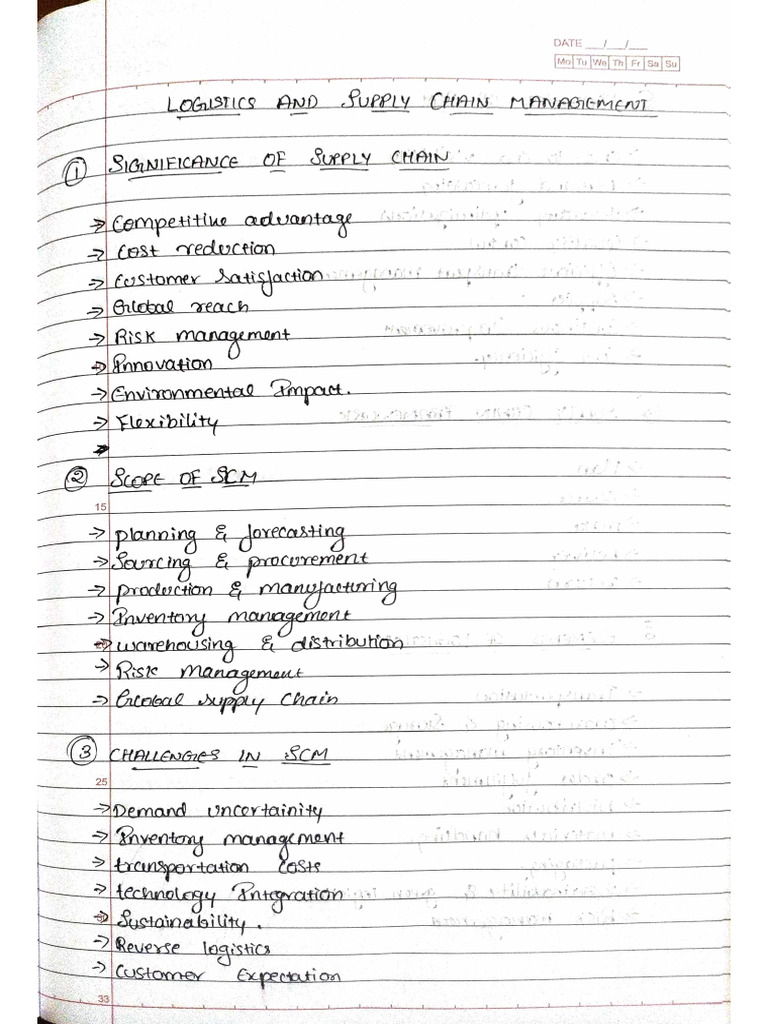 DATE __/__/__
Mo Tu We Th Fr Sa Su
LOGISTICS AND SUPPLY CHAIN MANAGEMENT
① SIGNIFICANCE OF SUPPLY CHAIN
→ Competitive advantage
→ Cost reduction
→ Customer Satisfaction
→ Global reach
→ Risk management
→ Innovation
→ Environmental Impact.
→ Flexibility
→
② SCOPE OF SCM
15
→ planning & forecasting
→ Sourcing & procurement
→ production & manufacturing
→ Inventory management
→ warehousing & distribution
→ Risk management
→ Global supply chain
③ CHALLENGES IN SCM
25
→ Demand uncertainity
→ Inventory management
→ transportation costs
→ technology Integration
→ Sustainability.
→ Reverse logistics
→ Customer Expectation
33